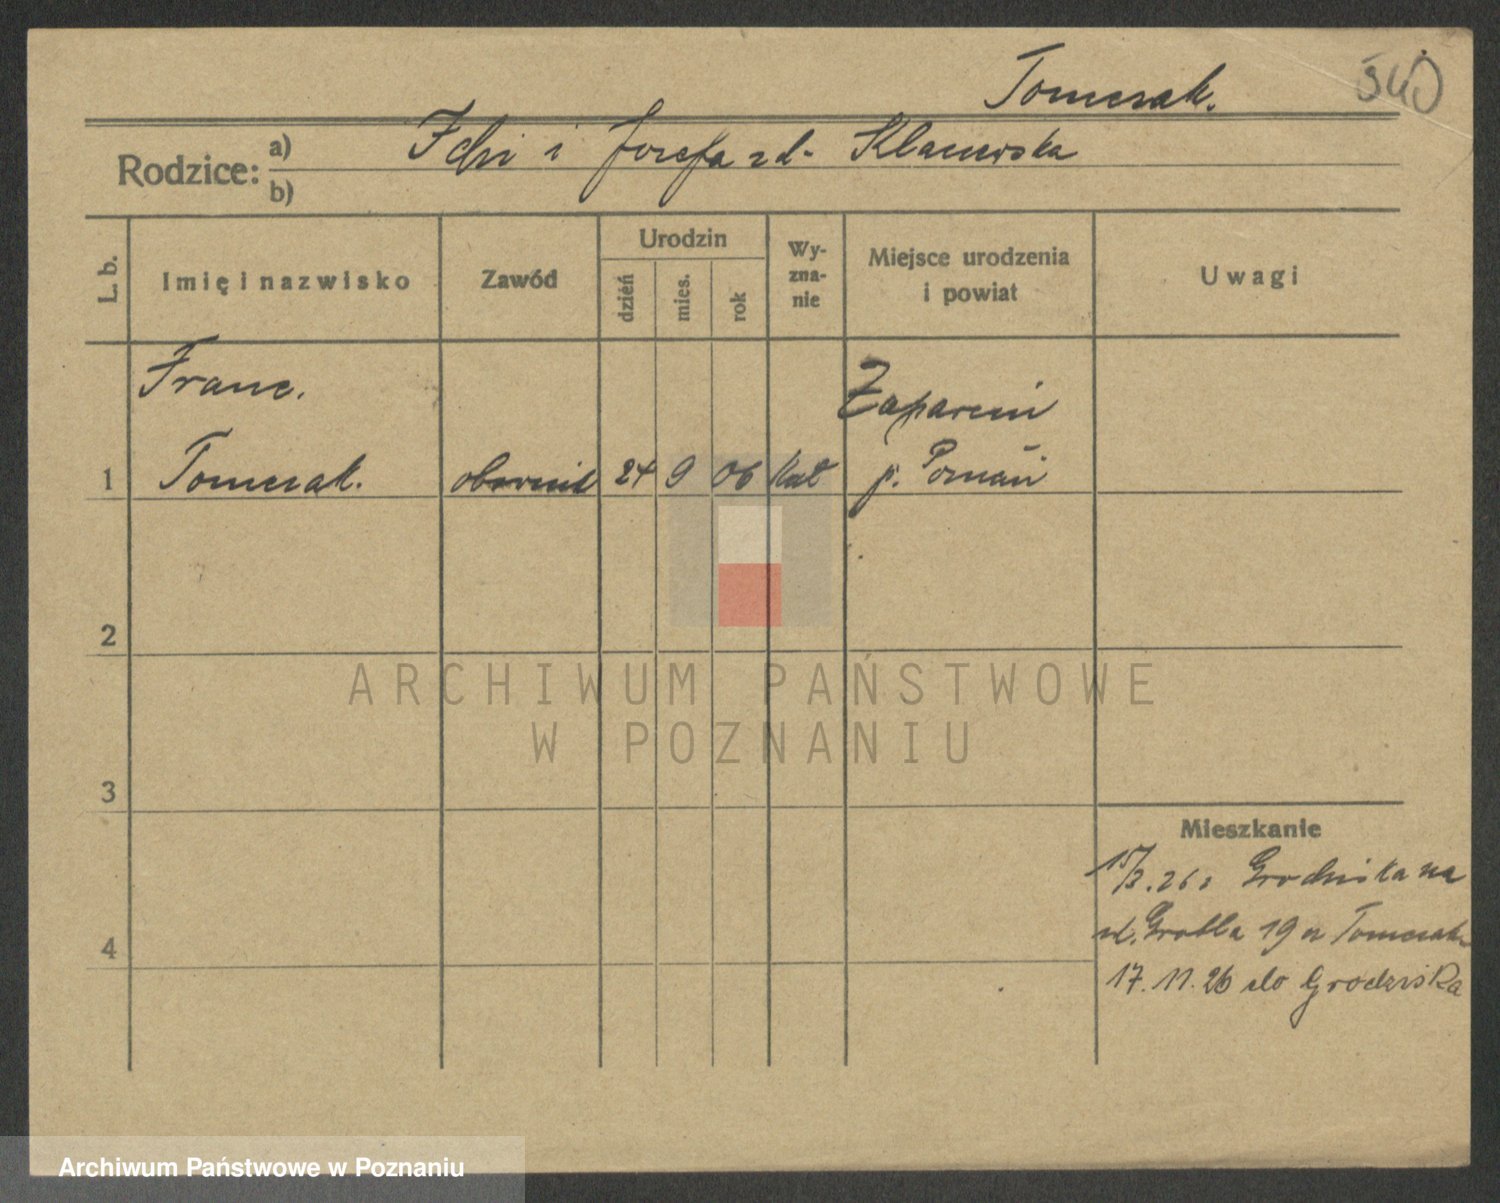 Tomczak.
540
Rodzice: a) i Józefa zd. Klaczewska
b)
L. b.
Imię i nazwisko
Zawód
Urodzin
dzień
mies.
rok
Wy-
zna-
nie
Miejsce urodzenia
i powiat
Uwagi
Franc.
Tomczak.
24 9 06 Kat
p. Poznań
1
2
3
4
Mieszkanie
15/3. 26 z Grodziska na
ul. Grobla 19 u Tomczak
17.11.26 do Grodziska
ARCHIWUM PAŃSTWOWE
W POZNANIU
Archiwum Państwowe w Poznaniu